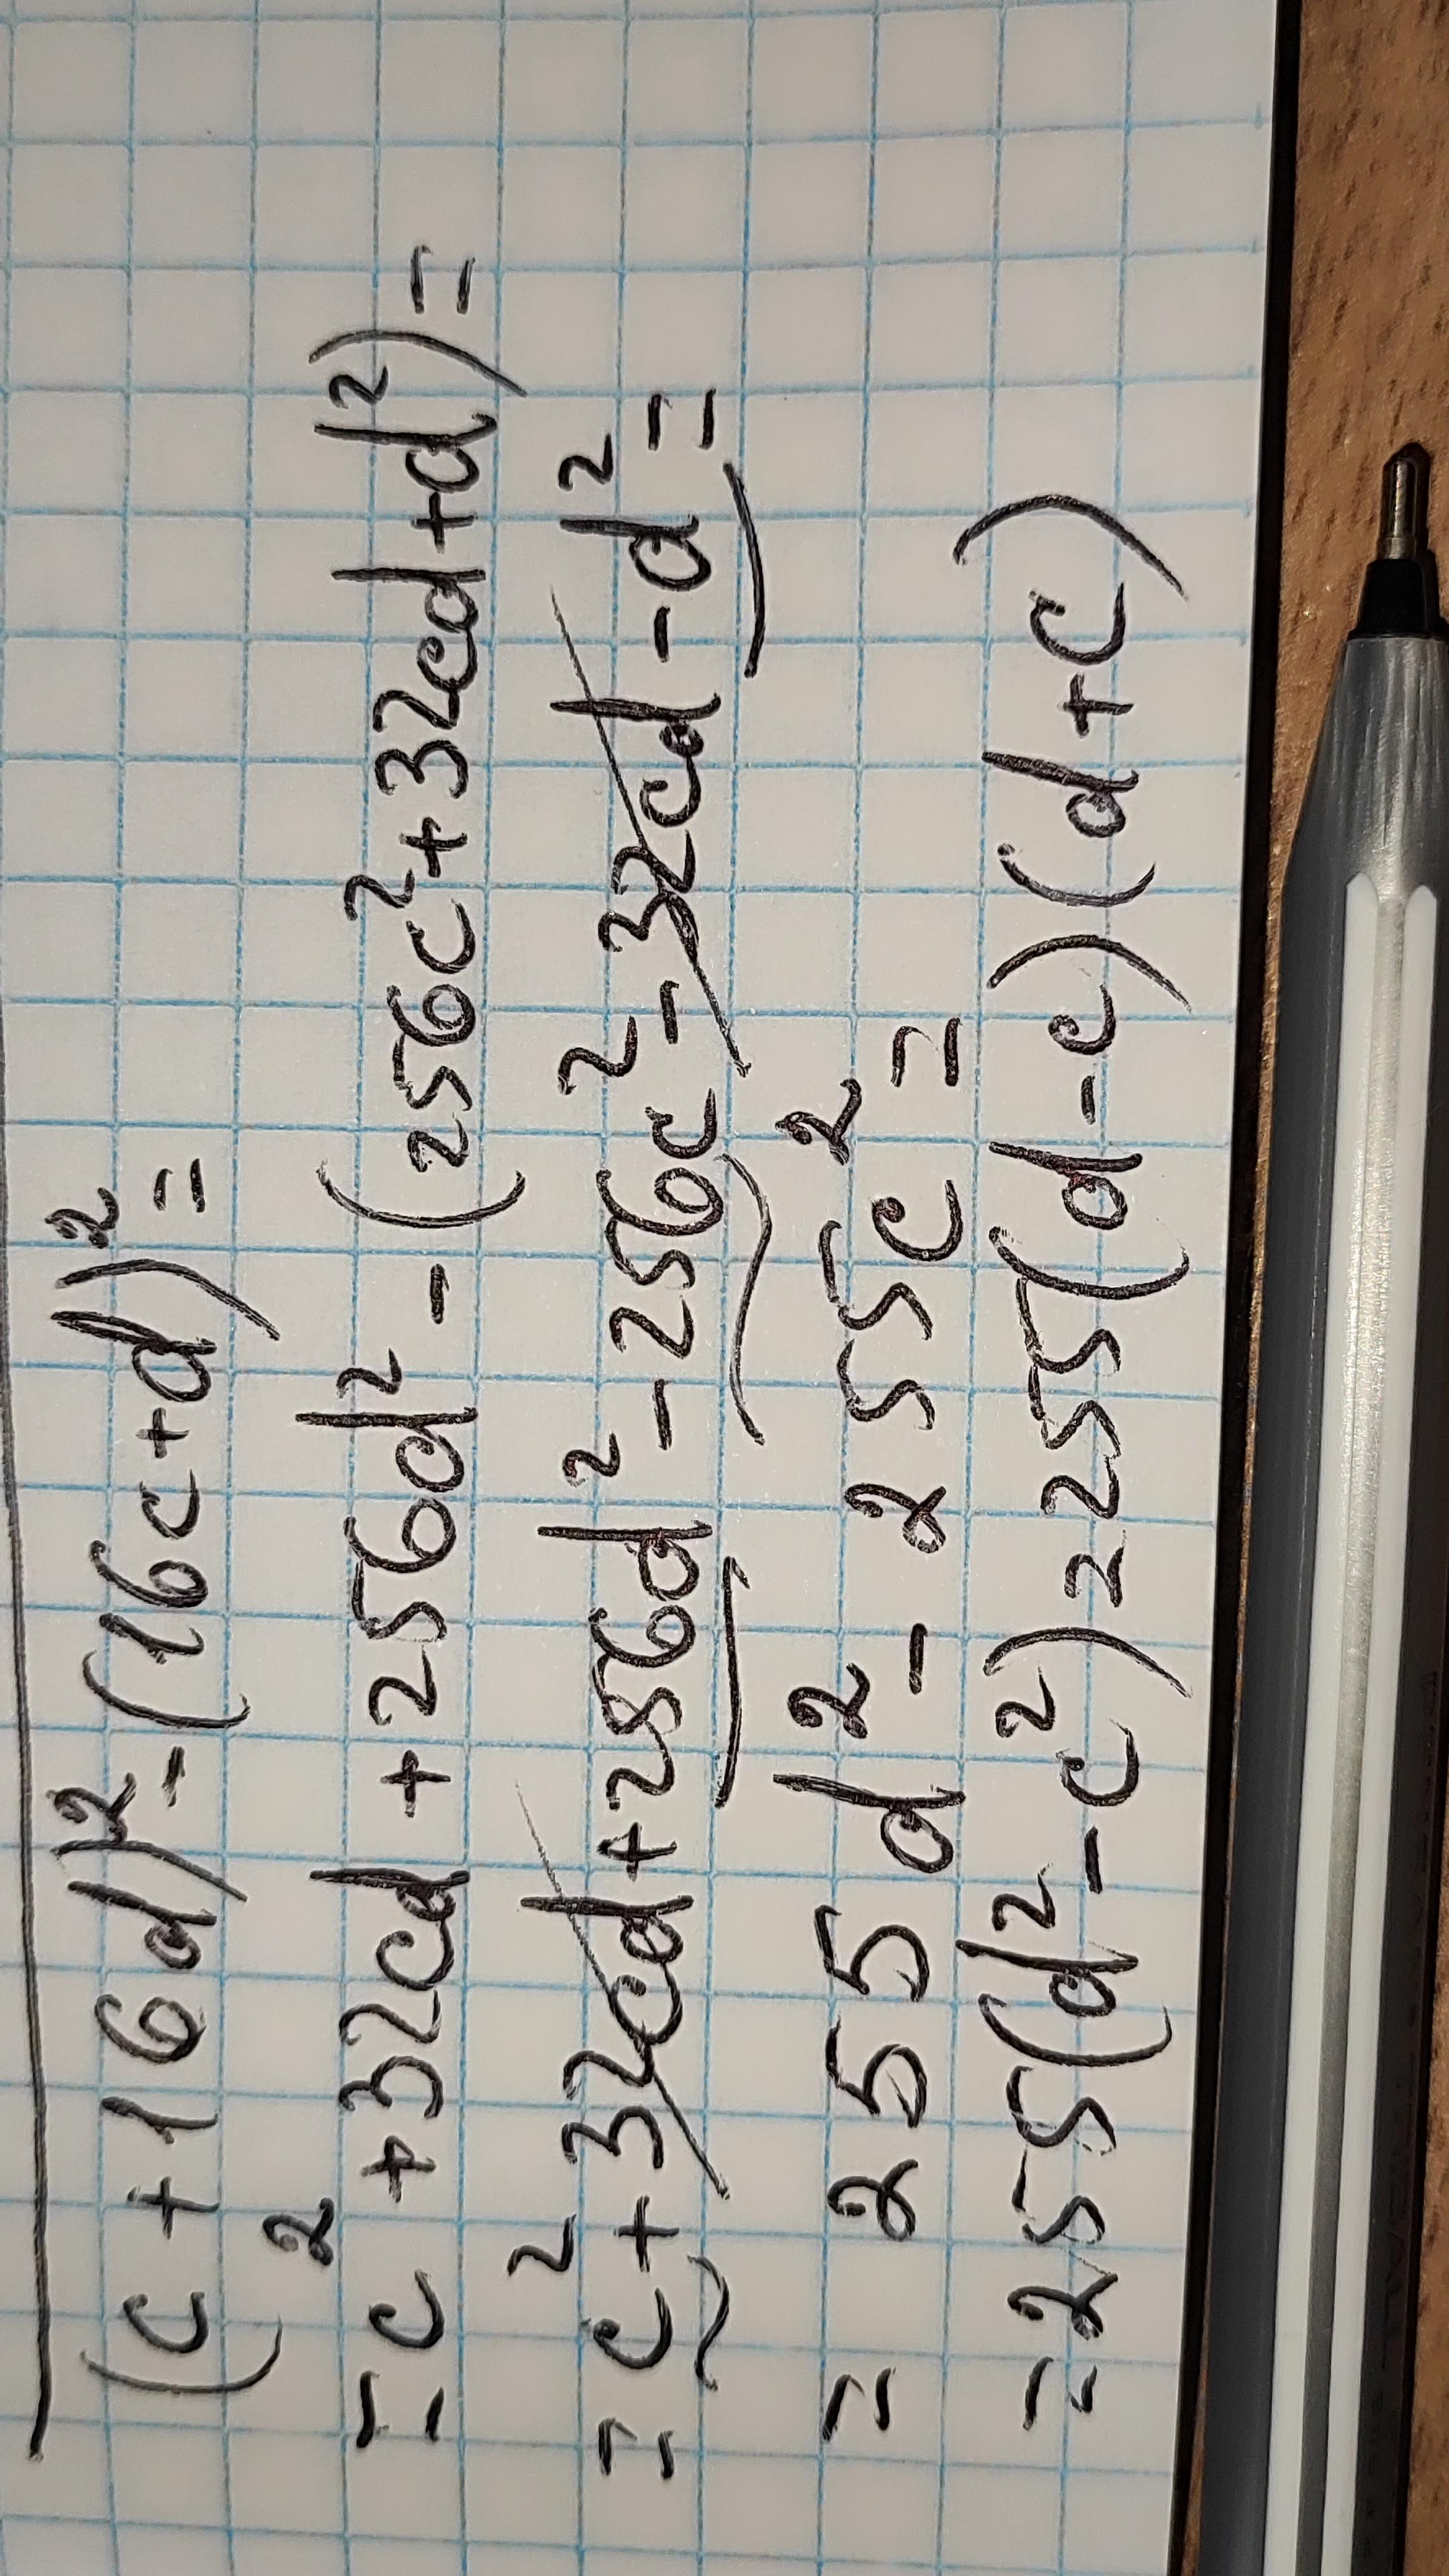 (c+16d)²-(16c+d)²=
=c²+32cd+256d²-(256c²+32cd+d²)=
=c²+32cd+256d²-256c²-32cd-d²=
=255d²-255c²=
=255(d²-c²)=255(d-c)(d+c)